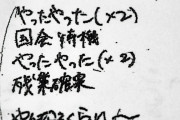 やったやった(×2)
国会待機
やったやった(×2)
残業確実